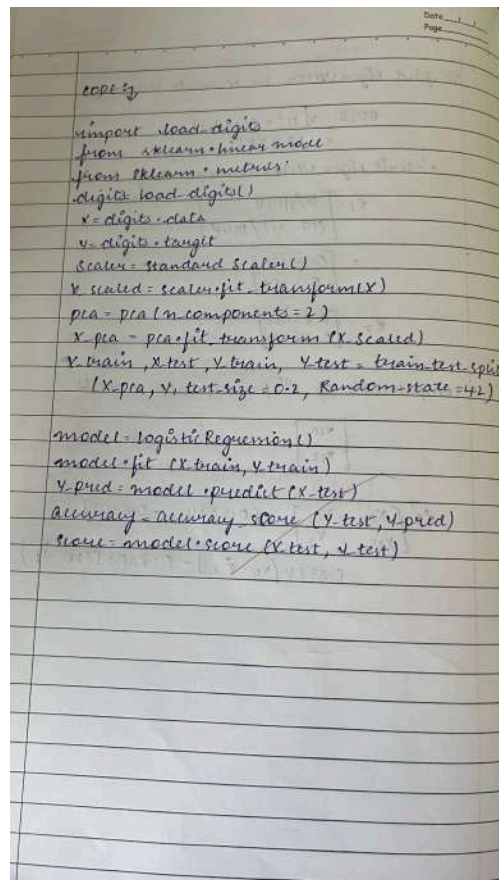 Date
Page
CODE:
import load-digits
from sklearn.linear mode
from sklearn.metrics.
digits load-digits()
x = digits.data
y = digits.target
Scaler = standard Scaler()
X_scaled = scaler.fit_transform(X)
pca = pca(n_components=2)
X_pca = pca.fit_transform(X_scaled)
X_train, X_test, Y_train, Y_test = train_test_split
(X_pca, Y, test_size=0.2, Random-state=42)
model = logistic Regression()
model.fit (X_train, Y_train)
Y_pred = model.predict(X_test)
accuracy = accuracy_score (Y_test, Y_pred)
score = model.score (X_test, Y_test)